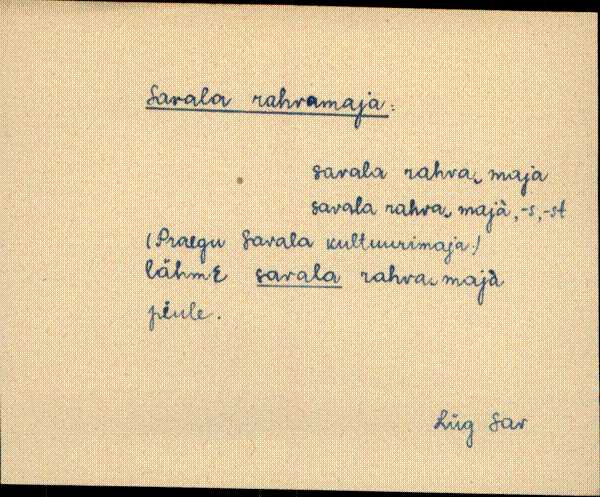 Savala rahvamaja:
savala rahva‿maja
savala rahva‿majà, -s, -st
(Praegu Savala kultuurimaja!)
lähmɛ savala rahva‿majà
piule.
Lüg Sav